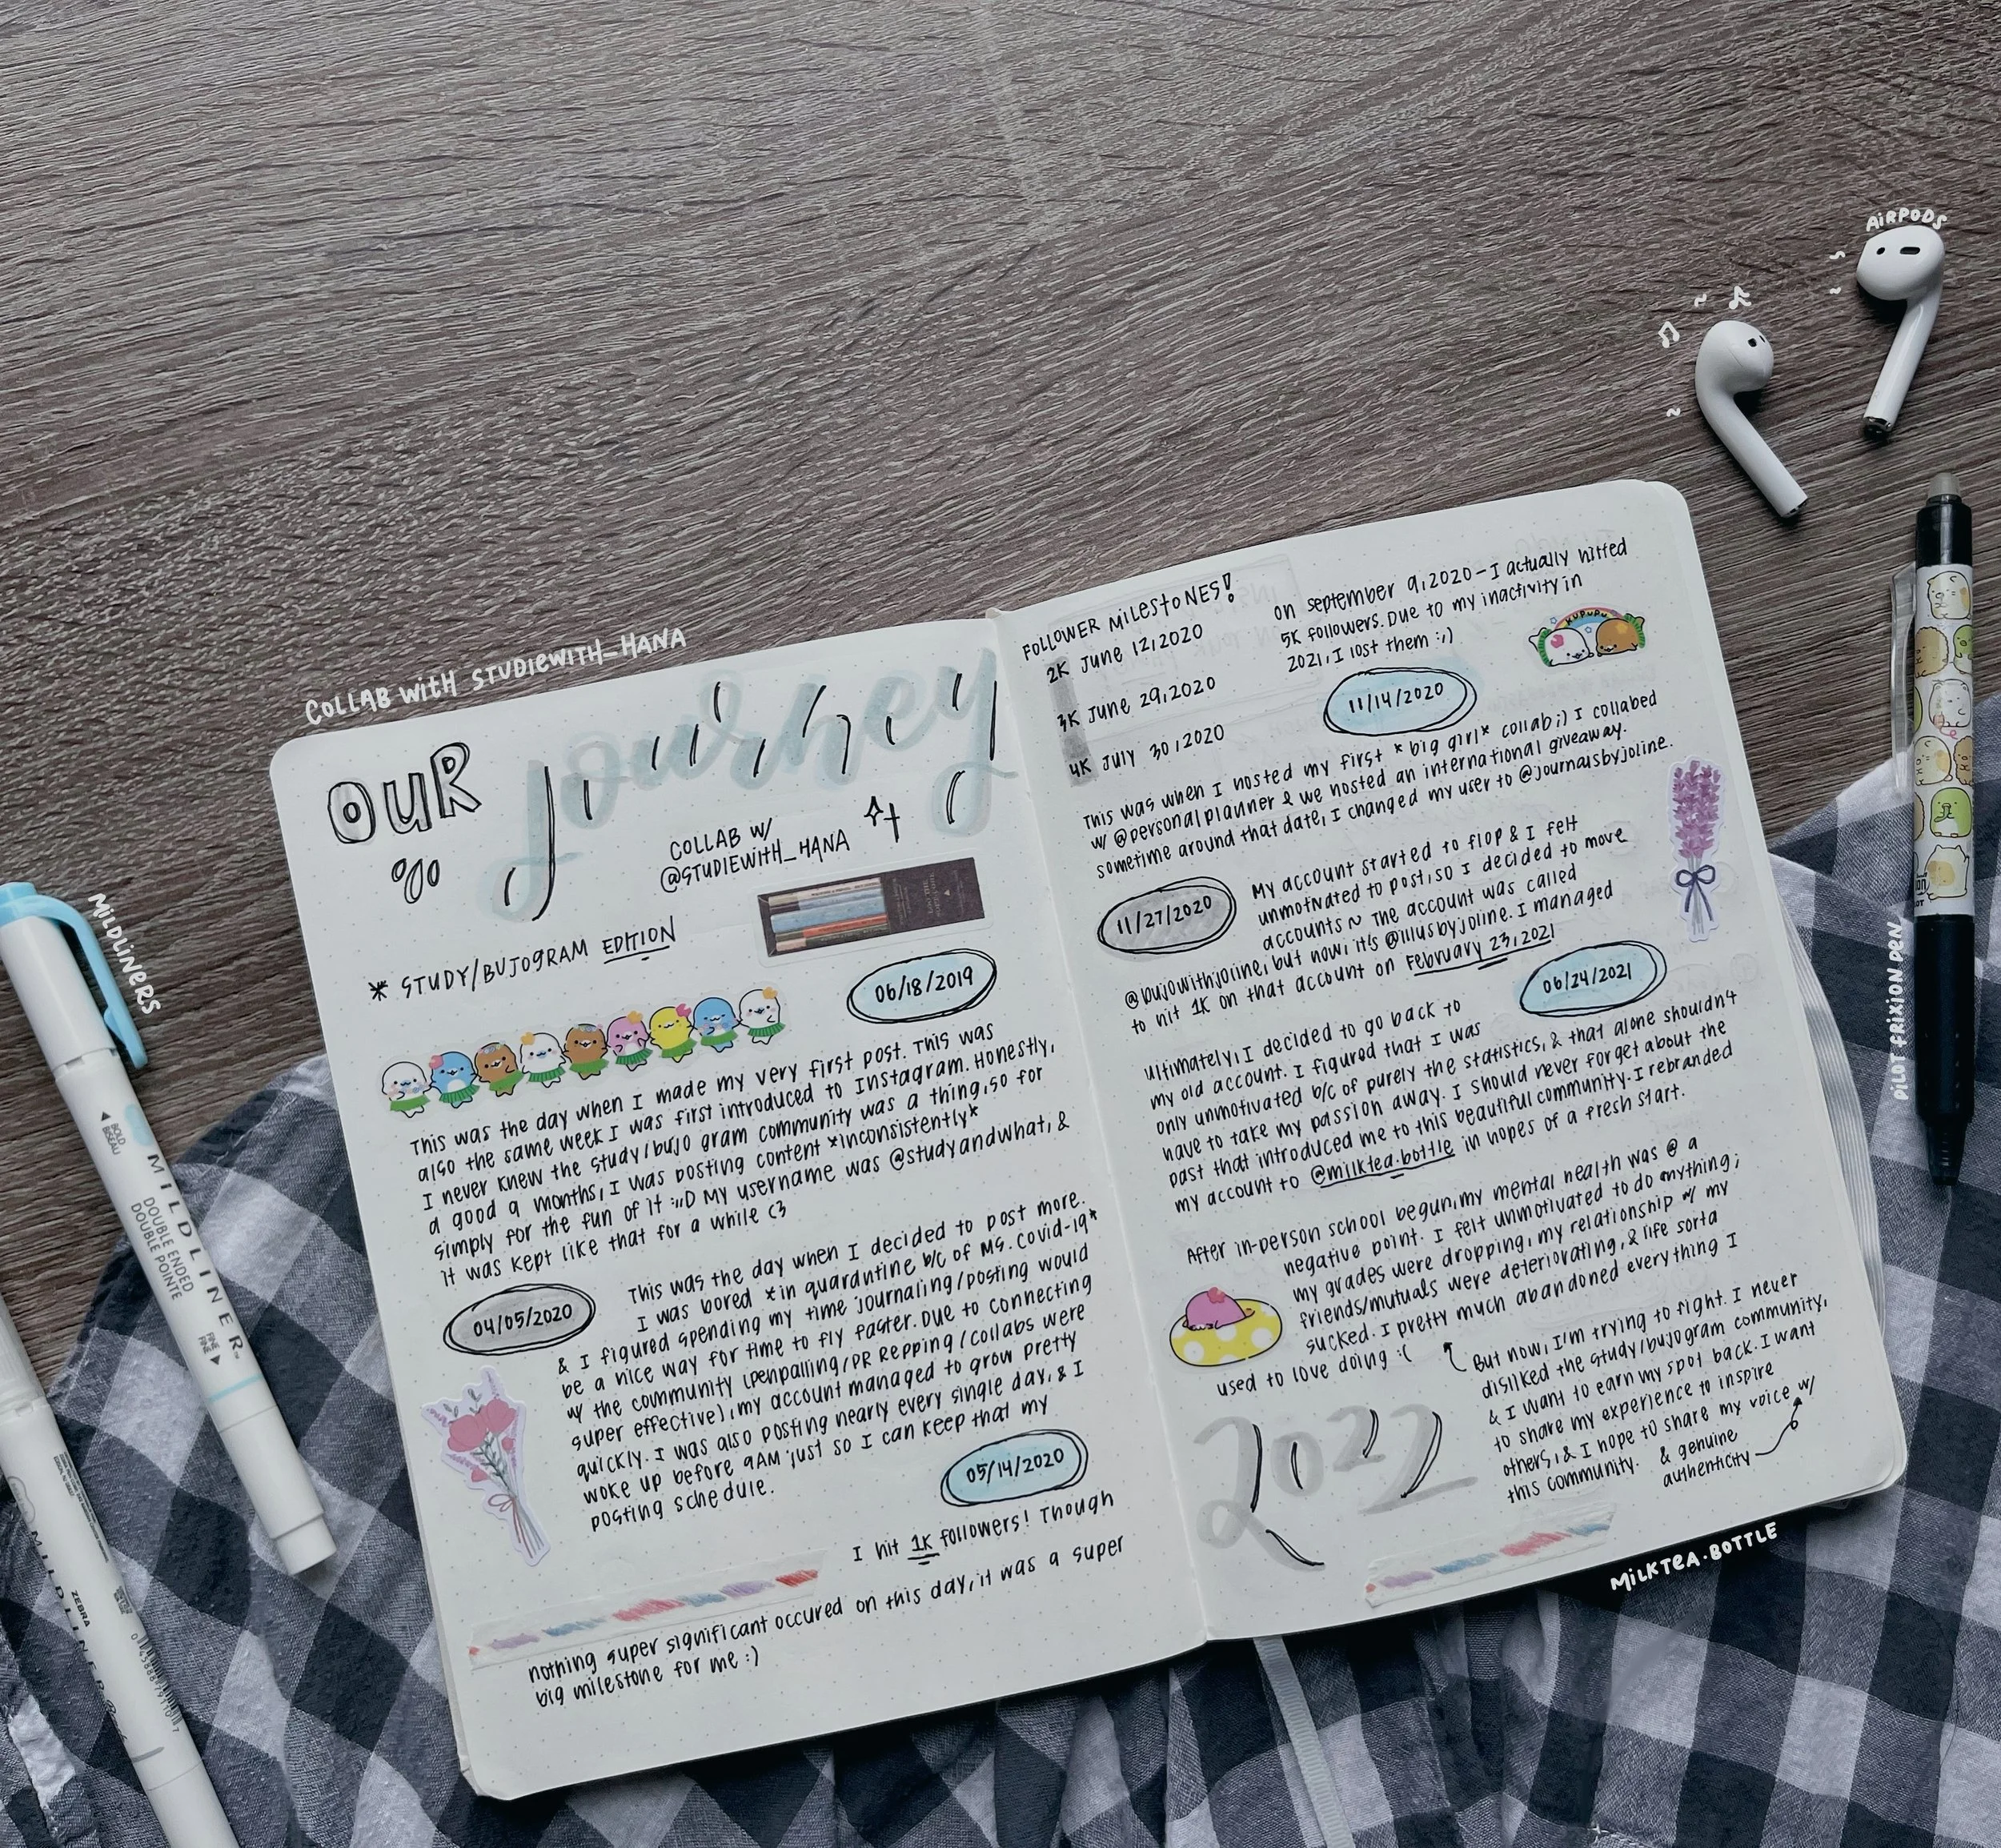 AiRPODS
COLLAB WitH STUDIEWITH_HANA
OUR journey
COLLAB W/
@STUDIEWITH_HANA
* STUDY/BUJOGRAM EDITION
06/18/2019
This was the day when I made my very first post. This was
also the same week I was first introduced to Instagram. Honestly,
I never knew the study/bujo gram community was a thing, so for
a good 9 months, I was posting content *inconsistently*
simply for the fun of it :,,D My username was @studyandwhat, &
it was kept like that for a while <3
04/05/2020
This was the day when I decided to post more.
I was bored *in quarantine b/c of Ms. Covid-19*
& I figured spending my time journaling/posting would
be a nice way for time to fly faster. Due to connecting
w/ the community (penpalling/PR Repping/collabs were
super effective), my account managed to grow pretty
quickly. I was also posting nearly every single day, & I
woke up before 9AM just so I can keep that my
posting schedule.
05/14/2020
I hit 1K followers! Though
nothing super significant occured on this day, it was a super
big milestone for me :)
FOLLOWER MILEStONES!
2K June 12, 2020
3K June 29, 2020
4K July 30, 2020
on september 9, 2020 - I actually hitted
5K followers. Due to my inactivity in
2021, I lost them :,)
KUPUPU
11/14/2020
This was when I hosted my first *big girl* collab ;) I collabed
w/ @personalplanner & we hosted an international giveaway.
sometime around that date, I changed my user to @journalsbyjoline.
11/27/2020
My account started to flop & I felt
unmotivated to post, so I decided to move
accounts ~ The account was called
@bujowithjoline, but now, it's @illusbyjoline. I managed
to hit 1K on that account on February 23, 2021
06/24/2021
Ultimately, I decided to go back to
my old account. I figured that I was
only unmotivated b/c of purely the statistics, & that alone shouldn't
have to take my passion away. I should never forget about the
past that introduced me to this beautiful community. I rebranded
my account to @milktea.bottle in hopes of a fresh start.
After in-person school begun, my mental health was @ a
negative point. I felt unmotivated to do anything;
my grades were dropping, my relationship w/ my
friends/mutuals were deteriorating, & life sorta
sucked. I pretty much abandoned everything I
used to love doing :(
But now, I'm trying to fight. I never
disliked the study/bujogram community,
& I want to earn my spot back. I want
to share my experience to inspire
others, & I hope to share my voice w/
this community. & genuine
authenticity
2022
MILKTEA.BOTTLE
MILDLINERS
BOLD
BISEAU
MILDLINER
DOUBLE ENDED
DOUBLE POINTE
FINE
FINE
ZEBRA
MILDLINER
PILOT FRIXION PEN